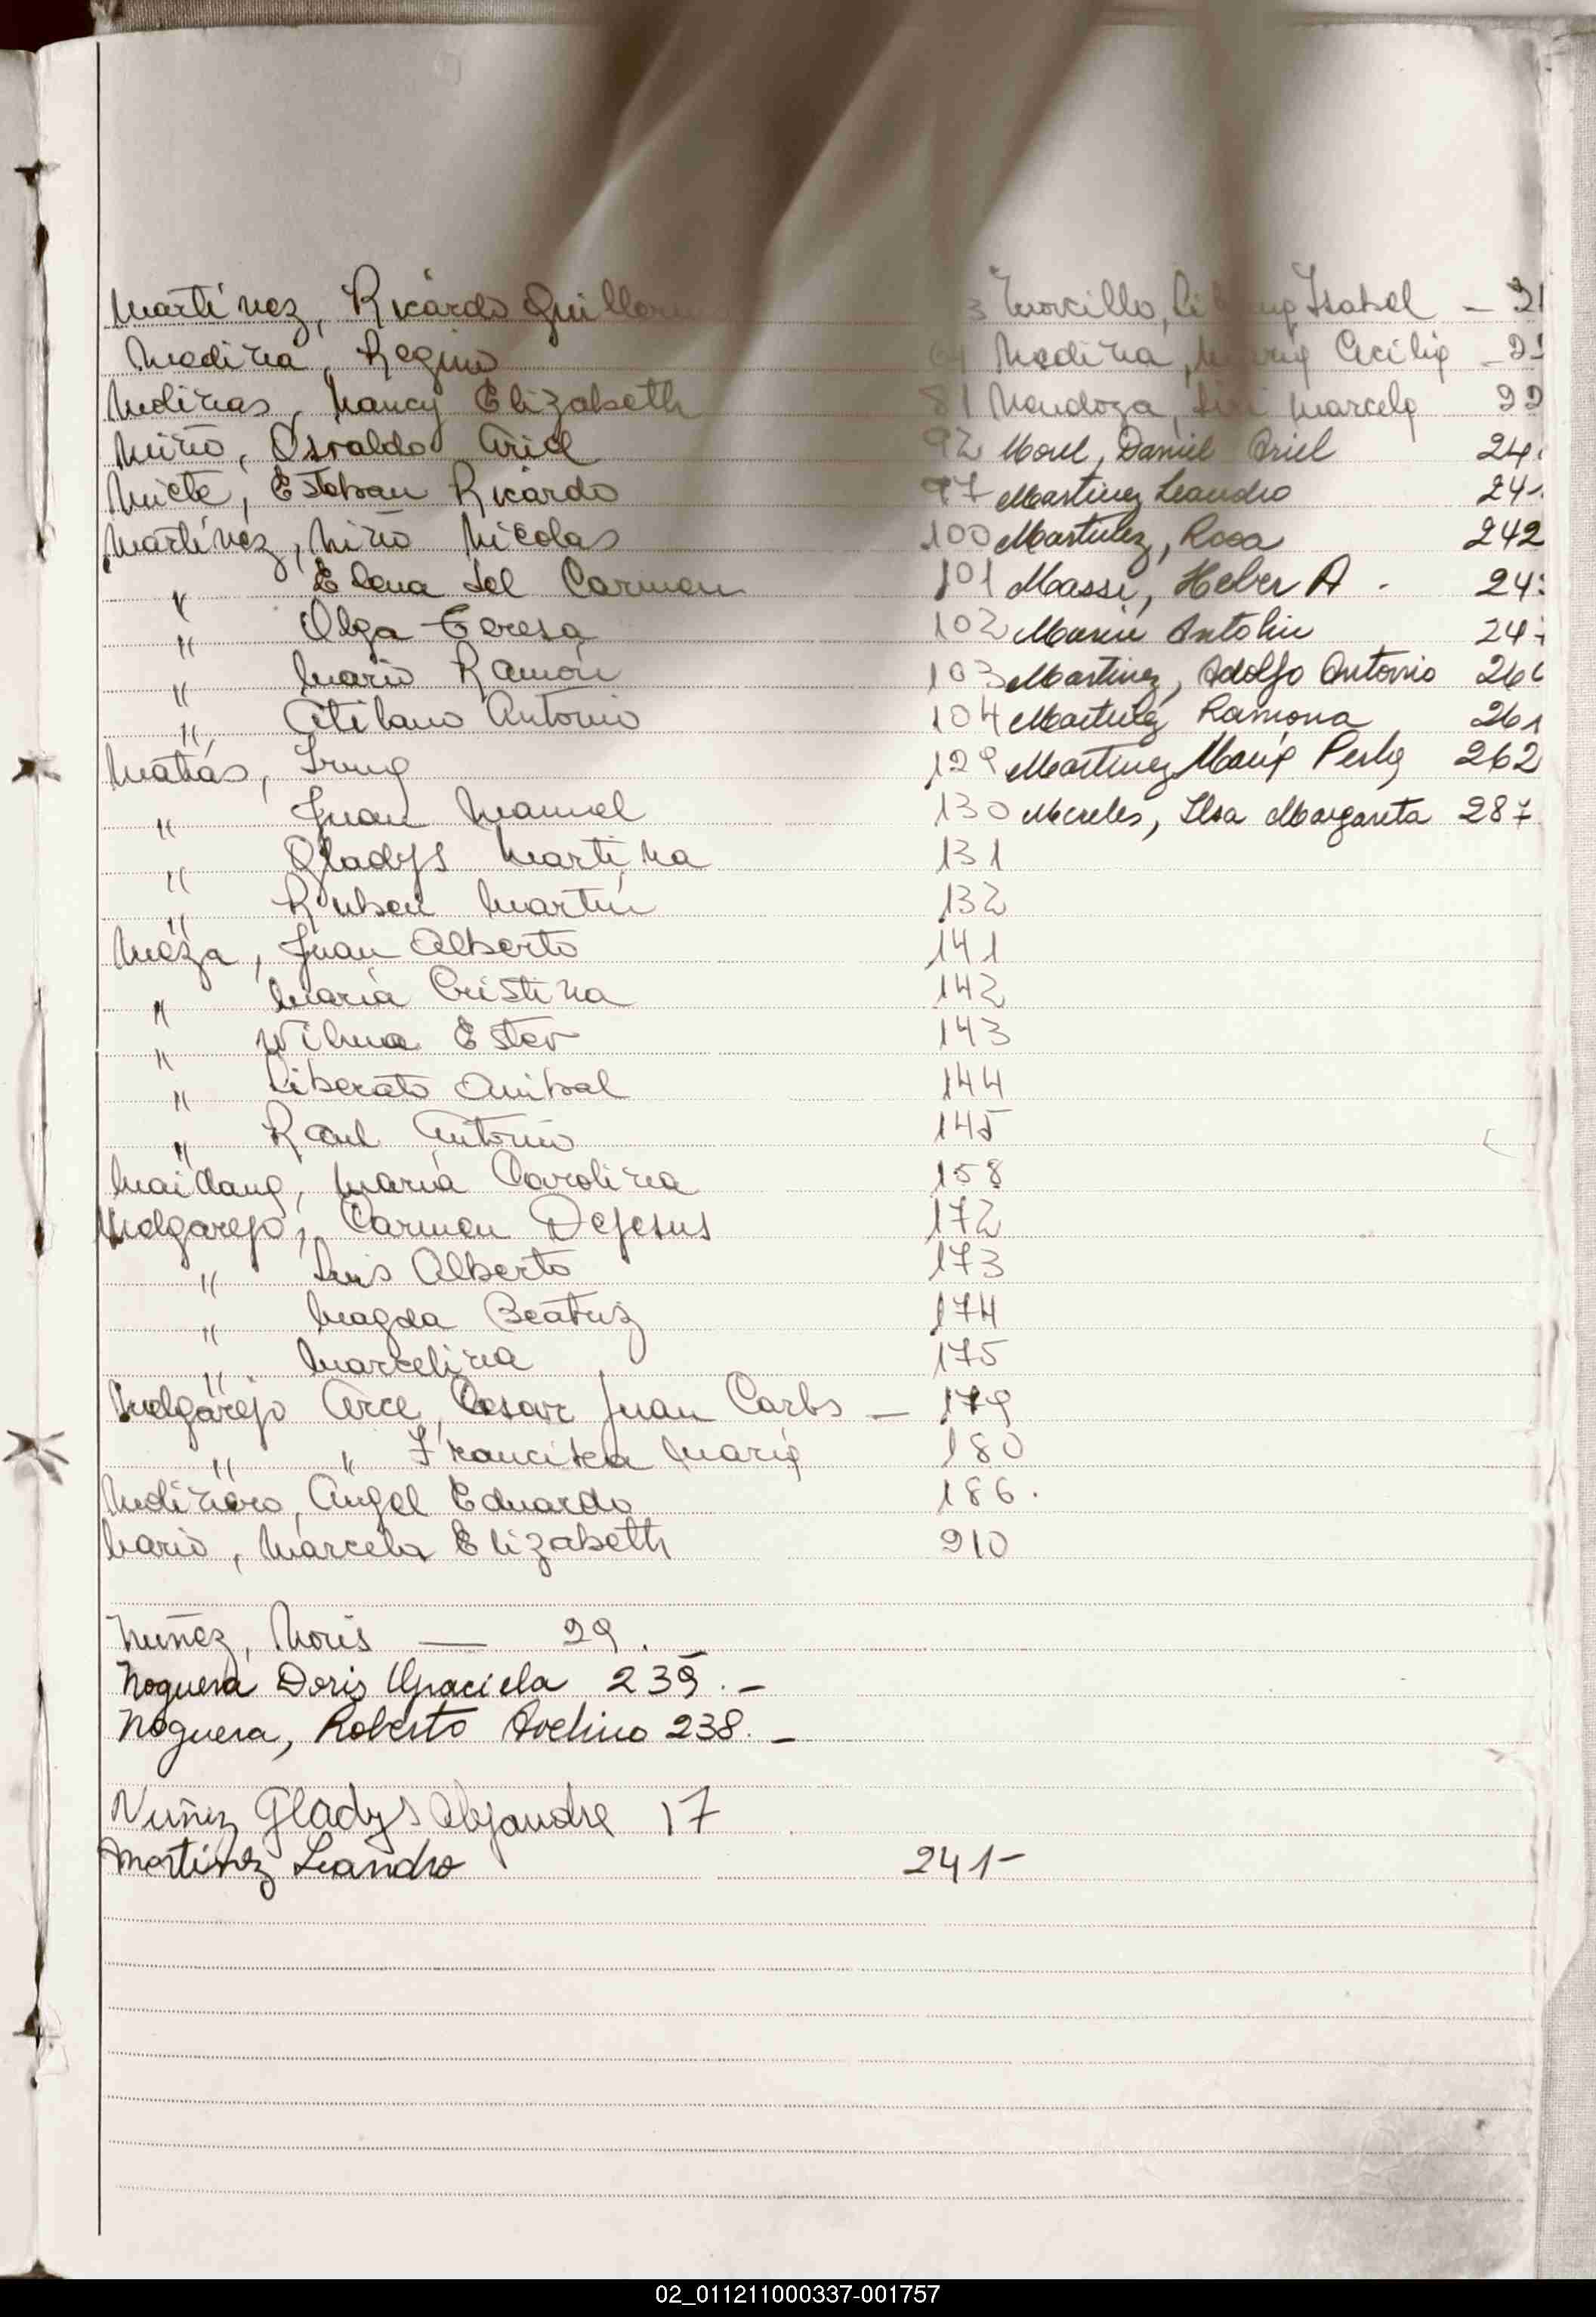 Martínez, Ricardo Guillermo
Medina, Regino
Molinas, Nancy Elizabeth 81
Miño, Osvaldo Ariel 92
Micte, Esteban Ricardo 97
Martínez, Niño Nicolas 100
" Elena del Carmen 101
" Olga Teresa 102
" Mario Ramón 103
" Atilano Antonio 104
Matías, Irma 129
" Juan Manuel 130
" Gladys Martina 131
" Ruben Martín 132
Meza, Juan Alberto 141
" María Cristina 142
" Wilma Ester 143
" Liberato Anibal 144
" Raul Antonio 145
Maidana, María Carolina 158
Melgarejo, Carmen Dejesus 172
" Luis Alberto 173
" Magda Beatriz 174
" Marcelina 175
Melgarejo Arce, Cesar Juan Carlos — 179
" " Francisca María 180
Moliniero, Angel Eduardo 186.
Mario, Marcela Elizabeth 210
Nuñez, Noris — 29.
Noguera Doris Graciela 239.-
Noguera, Roberto Avelino 238.-
Nuñez Gladys Alejandra 17
Martinez Leandro 241-
Morcillo, Isabel —
Medina, María Cecilia —
Mendoza, Marcela
Morel, Daniel Ariel 24
Martinez Leandro 241
Martinez, Rosa 242
Massi, Heber A. 24
Marin Antolin 24
Martinez, Adolfo Antonio 26
Martinez Ramona 261
Martinez María Perla 262
Mereles, Ilsa Margarita 287
02_011211000337-001757